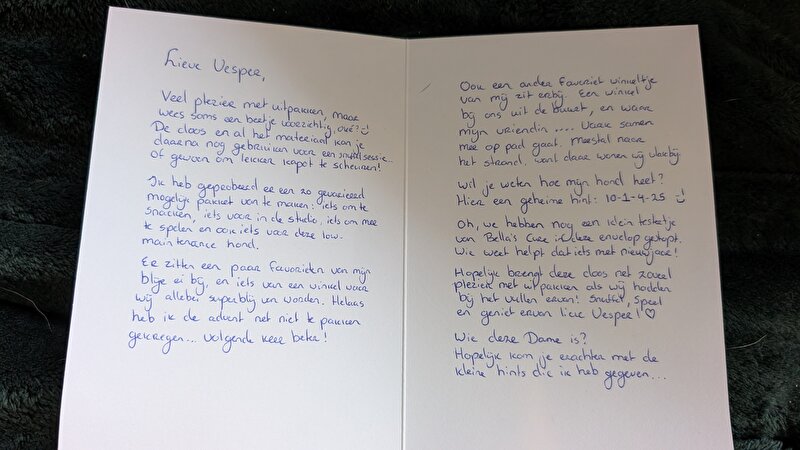 Lieve Vesper,
Veel plezier met uitpakken, maar
wees soms een beetje voorzichtig oké? :)
De doos en al het materiaal kan je
daarna nog gebruiken voor een snuffelsessie...
Of gewoon om lekker kapot te scheuren!
Ik heb geprobeerd er een zo gevarieerd
mogelijk pakket van te maken: iets om te
snacken, iets voor in de studio, iets om mee
te spelen en ook iets voor deze low-
maintenance hond.
Er zitten een paar favorieten van mijn
blije ei bij, en iets van een winkel waar
wij allebei superblij van worden. Helaas
heb ik de advent net niet te pakken
gekregen... volgende keer beter!
Ook een ander favoriet winkeltje
van mij zit erbij. Een winkel
bij ons uit de buurt, en waar
mijn vriendin .... vaak samen
mee op pad gaat. Meestal naar
het strand. Want daar wonen wij vlakbij.
Wil je weten hoe mijn hond heet?
Hier een geheime hint: 10-1-4-25 :)
Oh, we hebben nog een klein testertje
van Bella's Cure in deze envelop gestopt.
Wie weet helpt dat iets met nieuwjaar!
Hopelijk brengt deze doos net zoveel
plezier met uitpakken als wij hadden
bij het vullen ervan! Snuffel, speel
en geniet ervan lieve Vesper! ♡
Wie deze Dame is?
Hopelijk kom je erachter met de
kleine hints die ik heb gegeven...